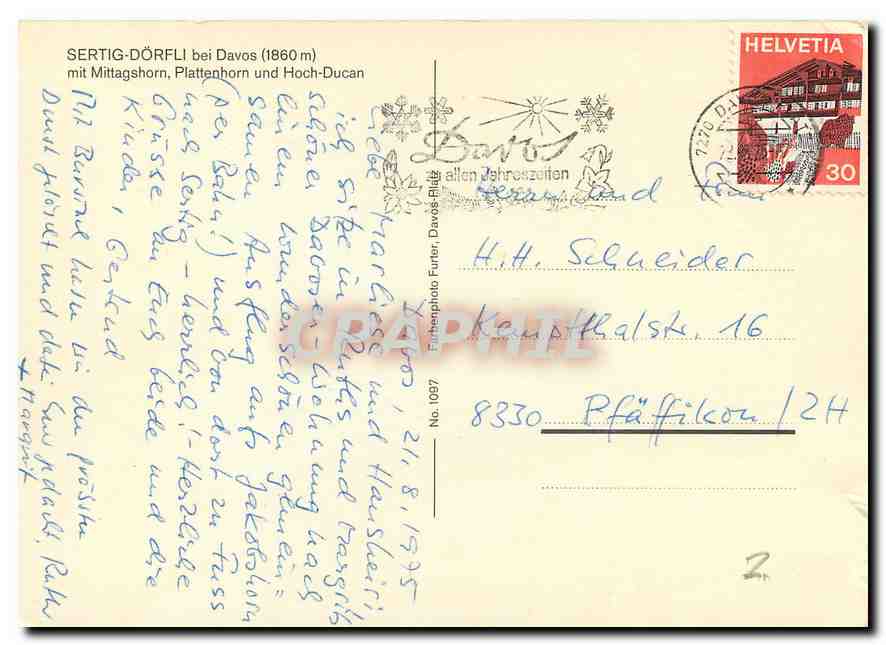 SERTIG-DÖRFLI bei Davos (1860 m)
mit Mittagshorn, Plattenhorn und Hoch-Ducan
HELVETIA
30
7270 DAVOS
Davos
allen Jahreszeiten
No. 1097 Farbenphoto Furter, Davos-Platz
Davos, 21.8.1975
Liebe Marliese und Hansheiri
ich sitze in Ruths und Margrits
schöner Davoser-Wohnung nach
einem wunderschönen gemein=
samen Ausflug aufs Jakobshorn
(per Bahn!) und von dort zu Fuss
nach Sertig - herrlich! - Herzliche
Grüsse an Euch beide und die
Kinder, Gertrud
Mit Bursiael haben wir den grössten
Durst gelöscht und dabei Euer gedacht, Ruth
+ Margrit
und
H.H. Schneider
Kempthalstr. 16
8330 Pfäffikon/ZH
CRAPHIL
Z